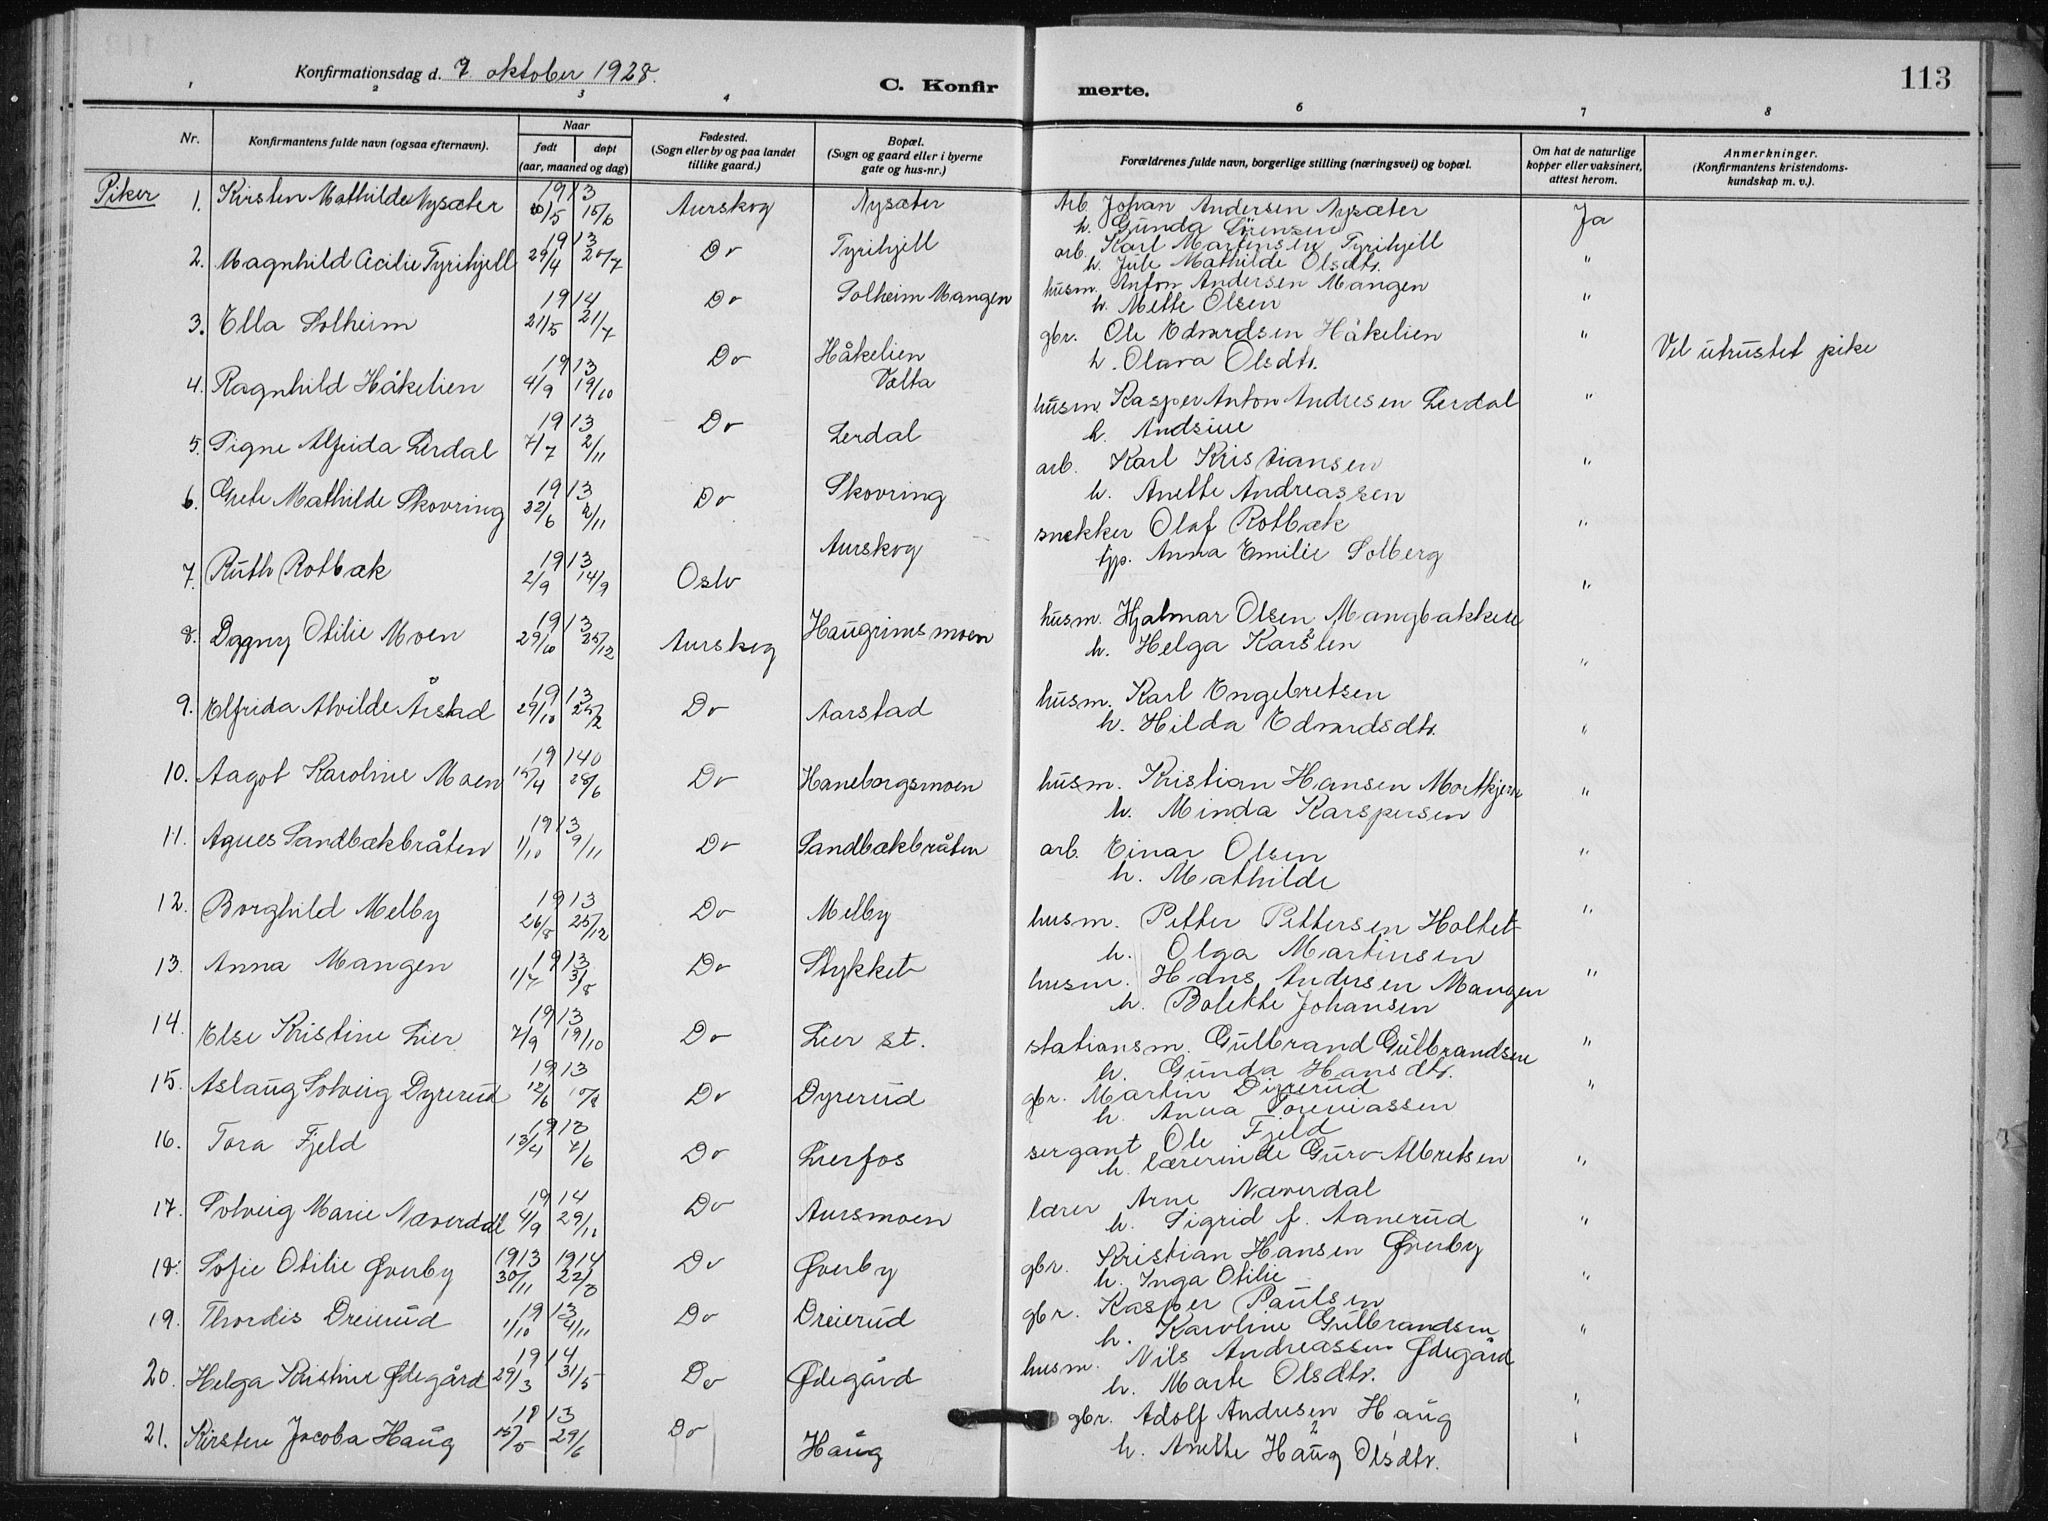 Konfirmationsdag d. 7 oktober 1928.
C. Konfirmerte.
113
1 2 3 4 5 6 7 8
Nr.
Konfirmantens fulde navn (ogsaa efternavn).
Naar
født
døpt
(aar, maaned og dag)
Fødested.
(Sogn eller by og paa landet
tillike gaard.)
Bopæl.
(Sogn og gaard eller i byerne
gate og hus-nr.)
Forældrenes fulde navn, borgerlige stilling (næringsvei) og bopæl.
Om hat de naturlige
kopper eller vaksinert,
attest herom.
Anmerkninger.
(Konfirmantens kristendoms-
kundskap m. v.).
Piker
1. Kirsten Mathilde Nysæter 1913 15/6 Aurskog Nysæter Arb. Johan Andersen Nysæter Ja
h. Gunda Sörensen
2. Magnhild Acilie Tyrihjell 1913 29/4 20/7 Do Tyrihjell arb. Karl Martinsen Tyrihjell "
h. Jule Mathilde Olsdtr.
3. Ella Solheim 1914 21/5 21/7 Do Solheim Mangen husm. Anton Andersen Mangen "
h. Mette Olsen
4. Ragnhild Håkelien 1913 4/9 19/10 Do Håkelien Vælta gbr. Ole Edvardsen Håkelien " Vel utrustet pike
h. Olava Olsdtr.
5. Signe Alfrida Lerdal 1913 7/7 2/11 Do Lerdal husm. Kasper Anton Andresen Lerdal "
h. Andsine
6. Grete Mathilde Skovring 1913 22/6 2/11 Do Skovring arb. Karl Kristiansen "
h. Anette Andreassen
7. Ruth Rotbæk 1913 2/9 14/9 Oslo Aurskog snekker Olaf Rotbæk "
h. Anna Emilie Solberg
8. Dagny Otilie Moen 1913 29/10 25/12 Aurskog Haugrimsmoen husm. Hjalmar Olsen Mangbakken "
h. Helga Karslen
9. Elfrida Alvilde Årstad 1913 29/10 25/2 Do Aarstad husm. Karl Engebretsen "
h. Hilda Edvardsdtr.
10. Aagot Karoline Moen 1914 15/4 28/6 Do Haneborgsmoen husm. Kristian Hansen Mortkjern "
h. Minda Karspersen
11. Agnes Sandbækbråten 1913 1/10 9/11 Do Sandbækbråten arb. Einar Olsen "
h. Mathilde
12. Borghild Melby 1913 26/8 25/12 Do Melby husm. Petter Pettersen Holtet "
h. Olga Martinsen
13. Anna Mangen 1913 1/7 3/8 Do Stykket husm. Hans Andersen Mangen "
h. Bolette Johansen
14. Else Kristine Lier 1913 7/9 19/10 Do Lier st. stationsm. Gulbrand Gulbrandsen "
h. Gunda Hansdtr.
15. Aslaug Solveig Dyrerud 1913 12/6 10/8 Do Dyrerud gbr. Martin Dyrerud "
h. Anna Toreniassen
16. Tora Fjeld 1913 13/4 7/6 Do Lierfos sergant Ole Fjeld "
h. lærerinde Guro Albretsen
17. Solveig Marie Næverdal 1914 4/9 29/11 Do Aursmoen lærer Arne Næverdal "
h. Sigrid f. Aanerud
18. Sofie Otilie Øverby 1913 1914 30/11 22/3 Do Øverby gbr. Kristian Hansen Øverby "
h. Inga Otilie
19. Thordis Dreierud 1913 1/10 4/11 Do Dreierud gbr. Kasper Paulsen "
h. Karoline Gulbrandsen
20. Helga Kristine Ødegård 1914 29/3 31/5 Do Ødegård husm. Nils Andreassen Ødegård "
h. Marte Olsdtr.
21. Kirsten Jacoba Haug 1913 15/5 29/6 Do Haug gbr. Adolf Andresen Haug "
h. Anette Haug Olsdtr.